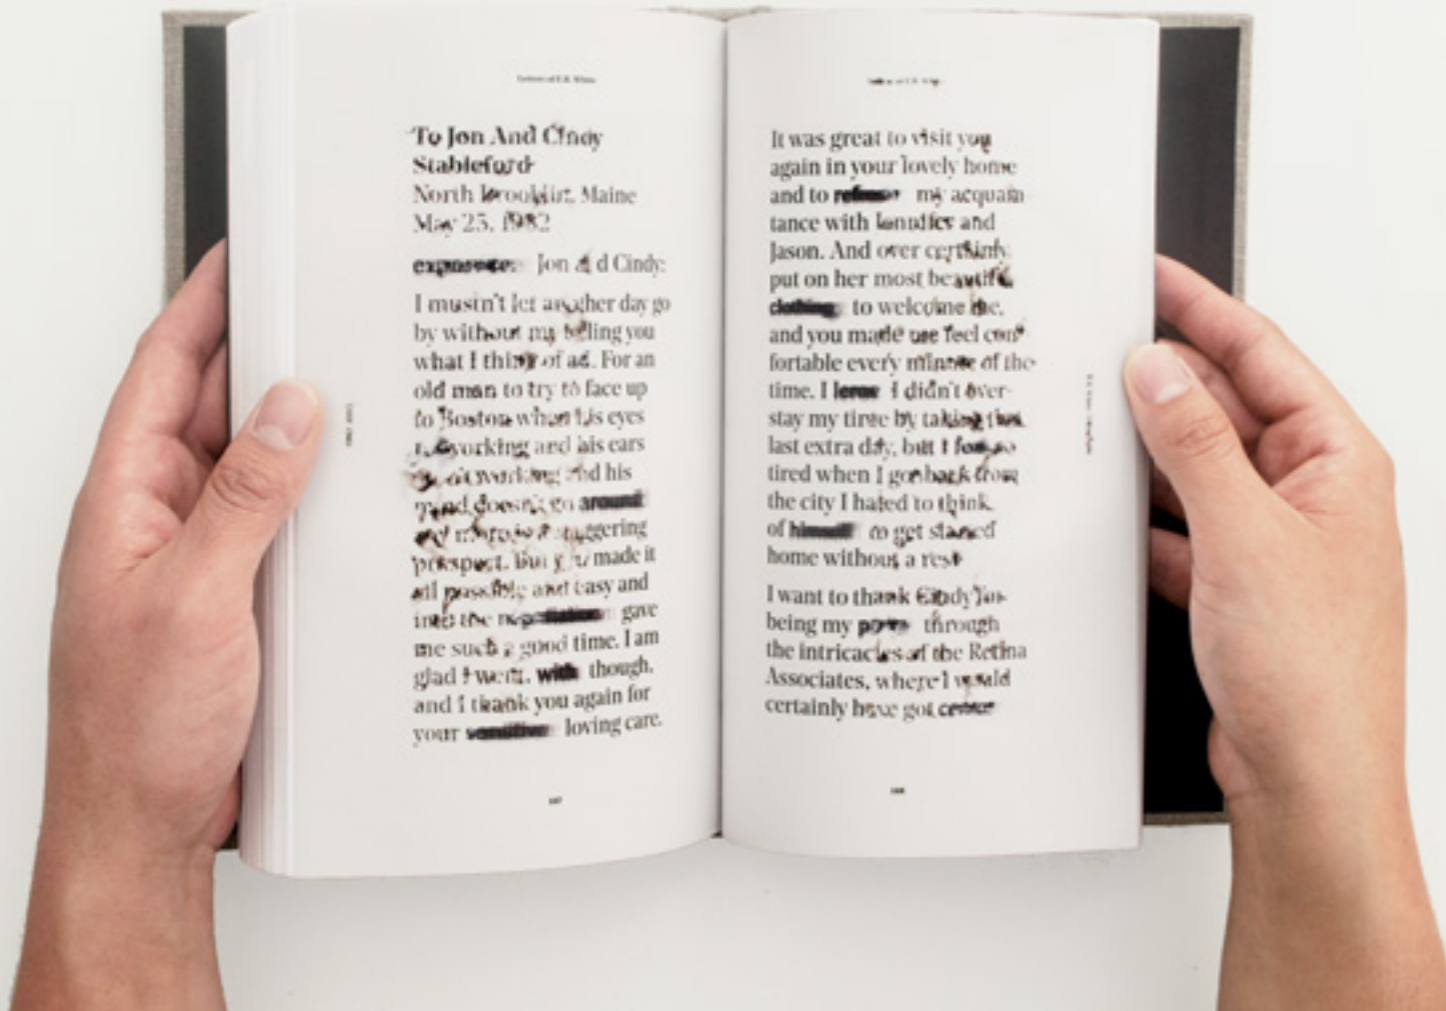 Letters of E.B. White
To Jon And Cindy
Stableford
North Brooklin, Maine
May 25, 1982
Jon d Cindy:
I musin't let another day go
by without my telling you
what I think of ad. For an
old man to try to face up
to Boston when his eyes
working and his ears
working and his
mind doesn't go around
and more is a staggering
prospect. But you made it
all possible and easy and
into the gave
me such a good time. I am
glad I went, with though,
and I thank you again for
your sensitive loving care.
It was great to visit you
again in your lovely home
and to my acquain-
tance with and
Jason. And over certainly
put on her most beautiful
clothing to welcome me,
and you made me feel com-
fortable every minute of the
time. I i didn't over-
stay my time by taking that
last extra day, but I
tired when I got back from
the city I hated to think
of himself to get started
home without a rest
I want to thank Cindy for
being my through
the intricacies of the Retina
Associates, where I would
certainly have got